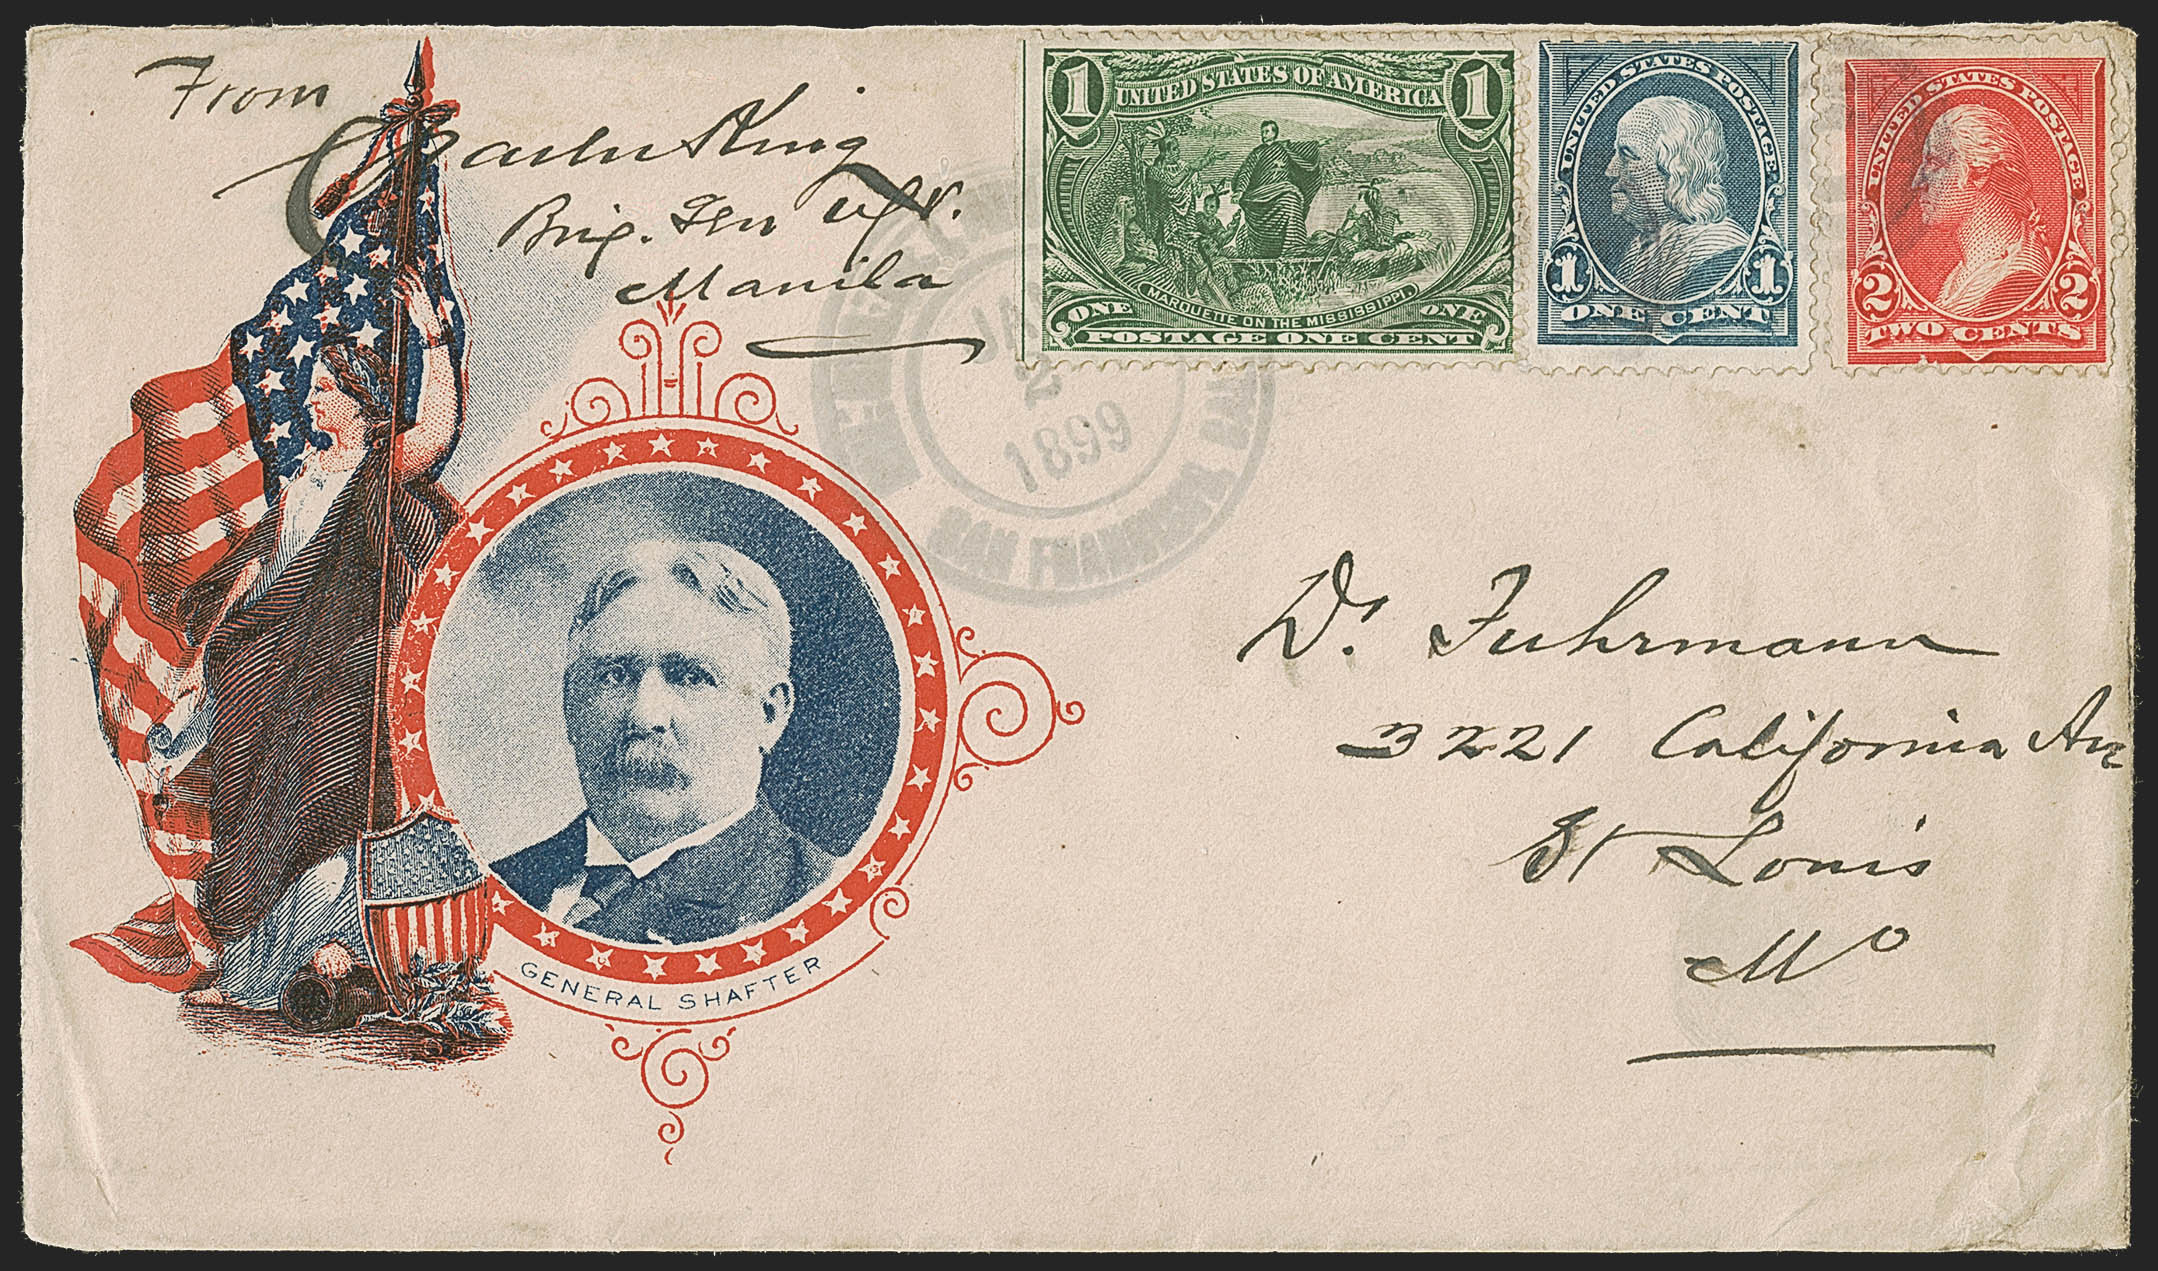 From
Charles King
Brig. Gen U.S.V.
Manila
1 UNITED STATES OF AMERICA 1
MARQUETTE ON THE MISSISSIPPI.
ONE ONE
POSTAGE ONE CENT
UNITED STATES POSTAGE
1 1
ONE CENT
UNITED STATES POSTAGE
2 2
TWO CENTS
2
1899
SAN FRANCISCO
Dr. Fuhrmann
3221 California Av
St Louis
Mo
GENERAL SHAFTER